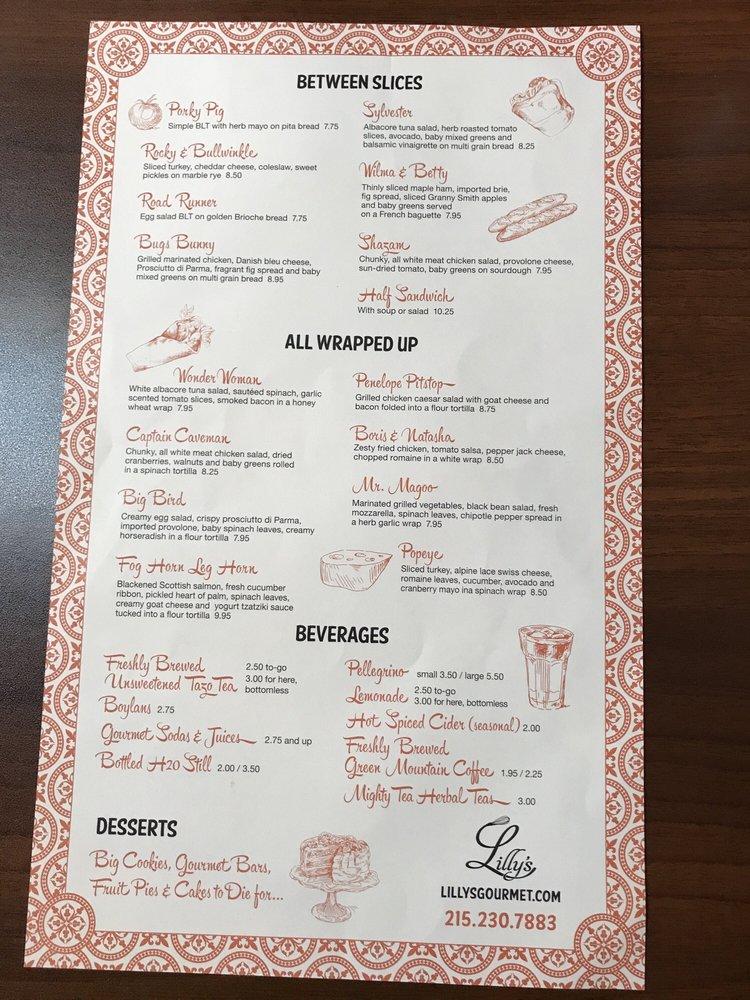 BETWEEN SLICES
Porky Pig
Simple BLT with herb mayo on pita bread 7.75
Rocky & Bullwinkle
Sliced turkey, cheddar cheese, coleslaw, sweet
pickles on marble rye 8.50
Road Runner
Egg salad BLT on golden Brioche bread 7.75
Bugs Bunny
Grilled marinated chicken, Danish bleu cheese,
Prosciutto di Parma, fragrant fig spread and baby
mixed greens on multi grain bread 8.95
Sylvester
Albacore tuna salad, herb roasted tomato
slices, avocado, baby mixed greens and
balsamic vinaigrette on multi grain bread 8.25
Wilma & Betty
Thinly sliced maple ham, imported brie,
fig spread, sliced Granny Smith apples
and baby greens served
on a French baguette 7.95
Shazam
Chunky, all white meat chicken salad, provolone cheese,
sun-dried tomato, baby greens on sourdough 7.95
Half Sandwich
With soup or salad 10.25
ALL WRAPPED UP
Wonder Woman
White albacore tuna salad, sautéed spinach, garlic
scented tomato slices, smoked bacon in a honey
wheat wrap 7.95
Captain Caveman
Chunky, all white meat chicken salad, dried
cranberries, walnuts and baby greens rolled
in a spinach tortilla 8.25
Big Bird
Creamy egg salad, crispy prosciutto di Parma,
imported provolone, baby spinach leaves, creamy
horseradish in a flour tortilla 7.95
Fog Horn Leg Horn
Blackened Scottish salmon, fresh cucumber
ribbon, pickled heart of palm, spinach leaves,
creamy goat cheese and yogurt tzatziki sauce
tucked into a flour tortilla 9.95
Penelope Pitstop
Grilled chicken caesar salad with goat cheese and
bacon folded into a flour tortilla 8.75
Boris & Natasha
Zesty fried chicken, tomato salsa, pepper jack cheese,
chopped romaine in a white wrap 8.50
Mr. Magoo
Marinated grilled vegetables, black bean salad, fresh
mozzarella, spinach leaves, chipotle pepper spread in
a herb garlic wrap 7.95
Popeye
Sliced turkey, alpine lace swiss cheese,
romaine leaves, cucumber, avocado and
cranberry mayo ina spinach wrap 8.50
BEVERAGES
Freshly Brewed
Unsweetened Tazo Tea
2.50 to-go
3.00 for here,
bottomless
Boylans 2.75
Gourmet Sodas & Juices 2.75 and up
Bottled H20 Still 2.00 / 3.50
Pellegrino small 3.50 / large 5.50
Lemonade 2.50 to-go
3.00 for here, bottomless
Hot Spiced Cider (seasonal) 2.00
Freshly Brewed
Green Mountain Coffee 1.95 / 2.25
Mighty Tea Herbal Teas 3.00
DESSERTS
Big Cookies, Gourmet Bars,
Fruit Pies & Cakes to Die for...
Lilly's
LILLYSGOURMET.COM
215.230.7883